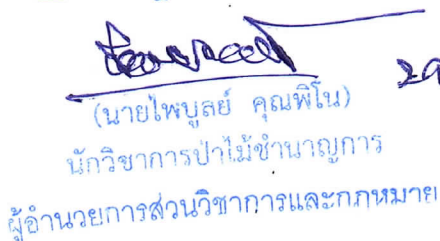 (นายไพบูลย์ คุณพิโน)
นักวิชาการป่าไม้ชำนาญการ
ผู้อำนวยการส่วนวิชาการและกฎหมาย